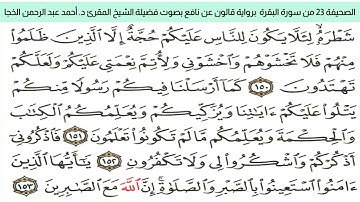 الصحيفة 23 من سورة البقرة برواية قالون عن نافع بصوت فضيلة الشيخ المقرئ د. أحمد عبد الرحمن الخجا
شَطْرَهُۥ لِيَلَّا يَكُونَ لِلنَّاسِ عَلَيْكُمْ حُجَّةٌ إِلَّا ٱلَّذِينَ ظَلَمُوا
مِنْهُمْ فَلَا تَخْشَوْهُمْ وَٱخْشَوْنِى وَلِأُتِمَّ نِعْمَتِى عَلَيْكُمْ وَلَعَلَّكُمْ
تَهْتَدُونَ ١٥٠ كَمَا أَرْسَلْنَا فِيكُمْ رَسُولًا مِّنكُمْ
يَتْلُوا عَلَيْكُمْ ءَايَٰتِنَا وَيُزَكِّيكُمْ وَيُعَلِّمُكُمُ ٱلْكِتَٰبَ
وَٱلْحِكْمَةَ وَيُعَلِّمُكُم مَّا لَمْ تَكُونُوا تَعْلَمُونَ ١٥١ فَٱذْكُرُونِى
أَذْكُرْكُمْ وَٱشْكُرُوا لِى وَلَا تَكْفُرُونِ ١٥٢ يَٰٓأَيُّهَا ٱلَّذِينَ
ءَامَنُوا ٱسْتَعِينُوا بِٱلصَّبْرِ وَٱلصَّلَوٰةِ إِنَّ ٱللَّهَ مَعَ ٱلصَّٰبِرِينَ ١٥٣